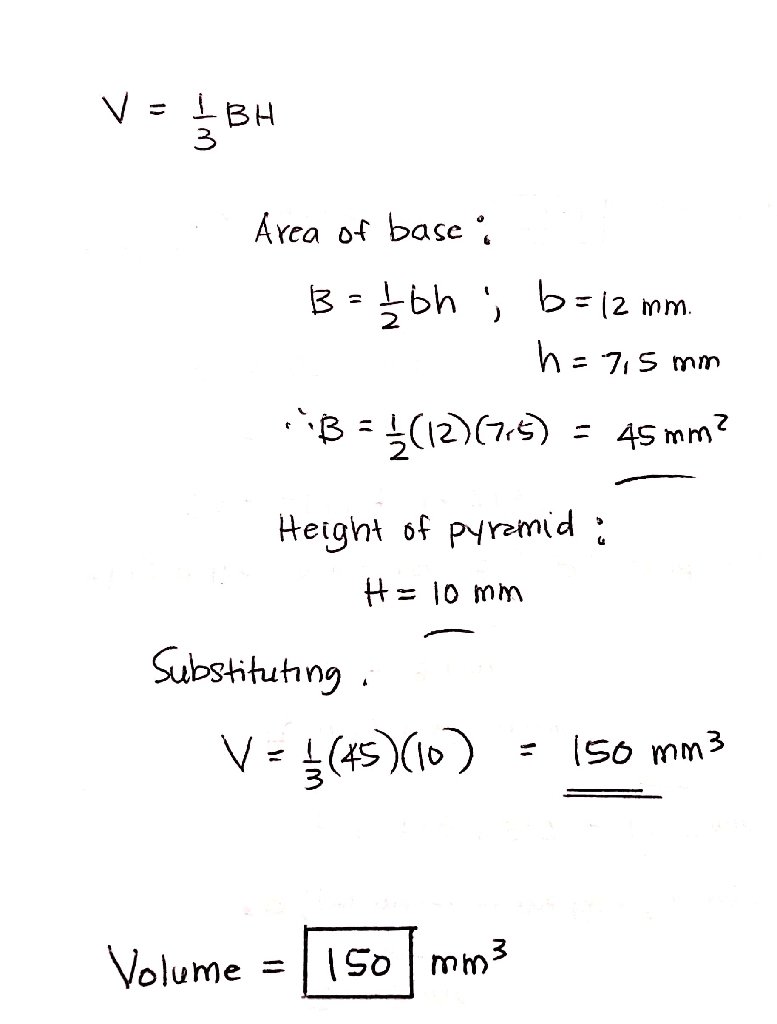 V = 1/3 BH
Area of base :
B = 1/2 bh ; b = 12 mm.
h = 7,5 mm
∴ B = 1/2 (12)(7.5) = 45 mm²
Height of pyramid :
H = 10 mm
Substituting .
V = 1/3 (45)(10) = 150 mm³
Volume = 150 mm³